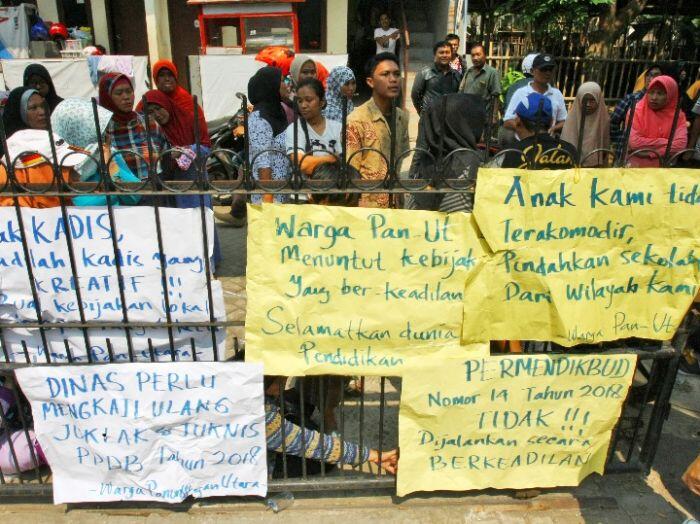 KADIS,
kadis yang
KREATIF !!!
kebijakan lokal
Warga Pan-Utara -
Warga Pan-Ut
Menuntut kebijak
Yang ber-keadilan
Selamatkan dunia
Pendidikan
Anak kami tida
Terakomodir,
Pindahkan sekolah
Dari Wilayah Kami
Warga Pan-Ut
DINAS PERLU
MENGKAJI ULANG
JUKLAK & JUKNIS
PPDB Tahun 2018
PERMENDIKBUD
Nomor 14 Tahun 2018
TIDAK !!!
Dijalankan secara
BERKEADILAN